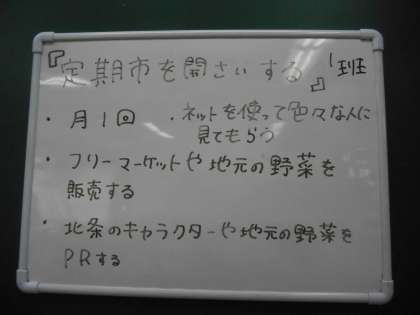 『定期市を開さいする』 1班
・月1回 ・ネットを使って色々な人に
見てもらう
・フリーマーケットや地元の野菜を
販売する
・北条のキャラクターや地元の野菜を
PRする